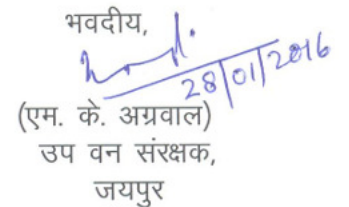 भवदीय,
28/01/2016
(एम. के. अग्रवाल)
उप वन संरक्षक,
जयपुर